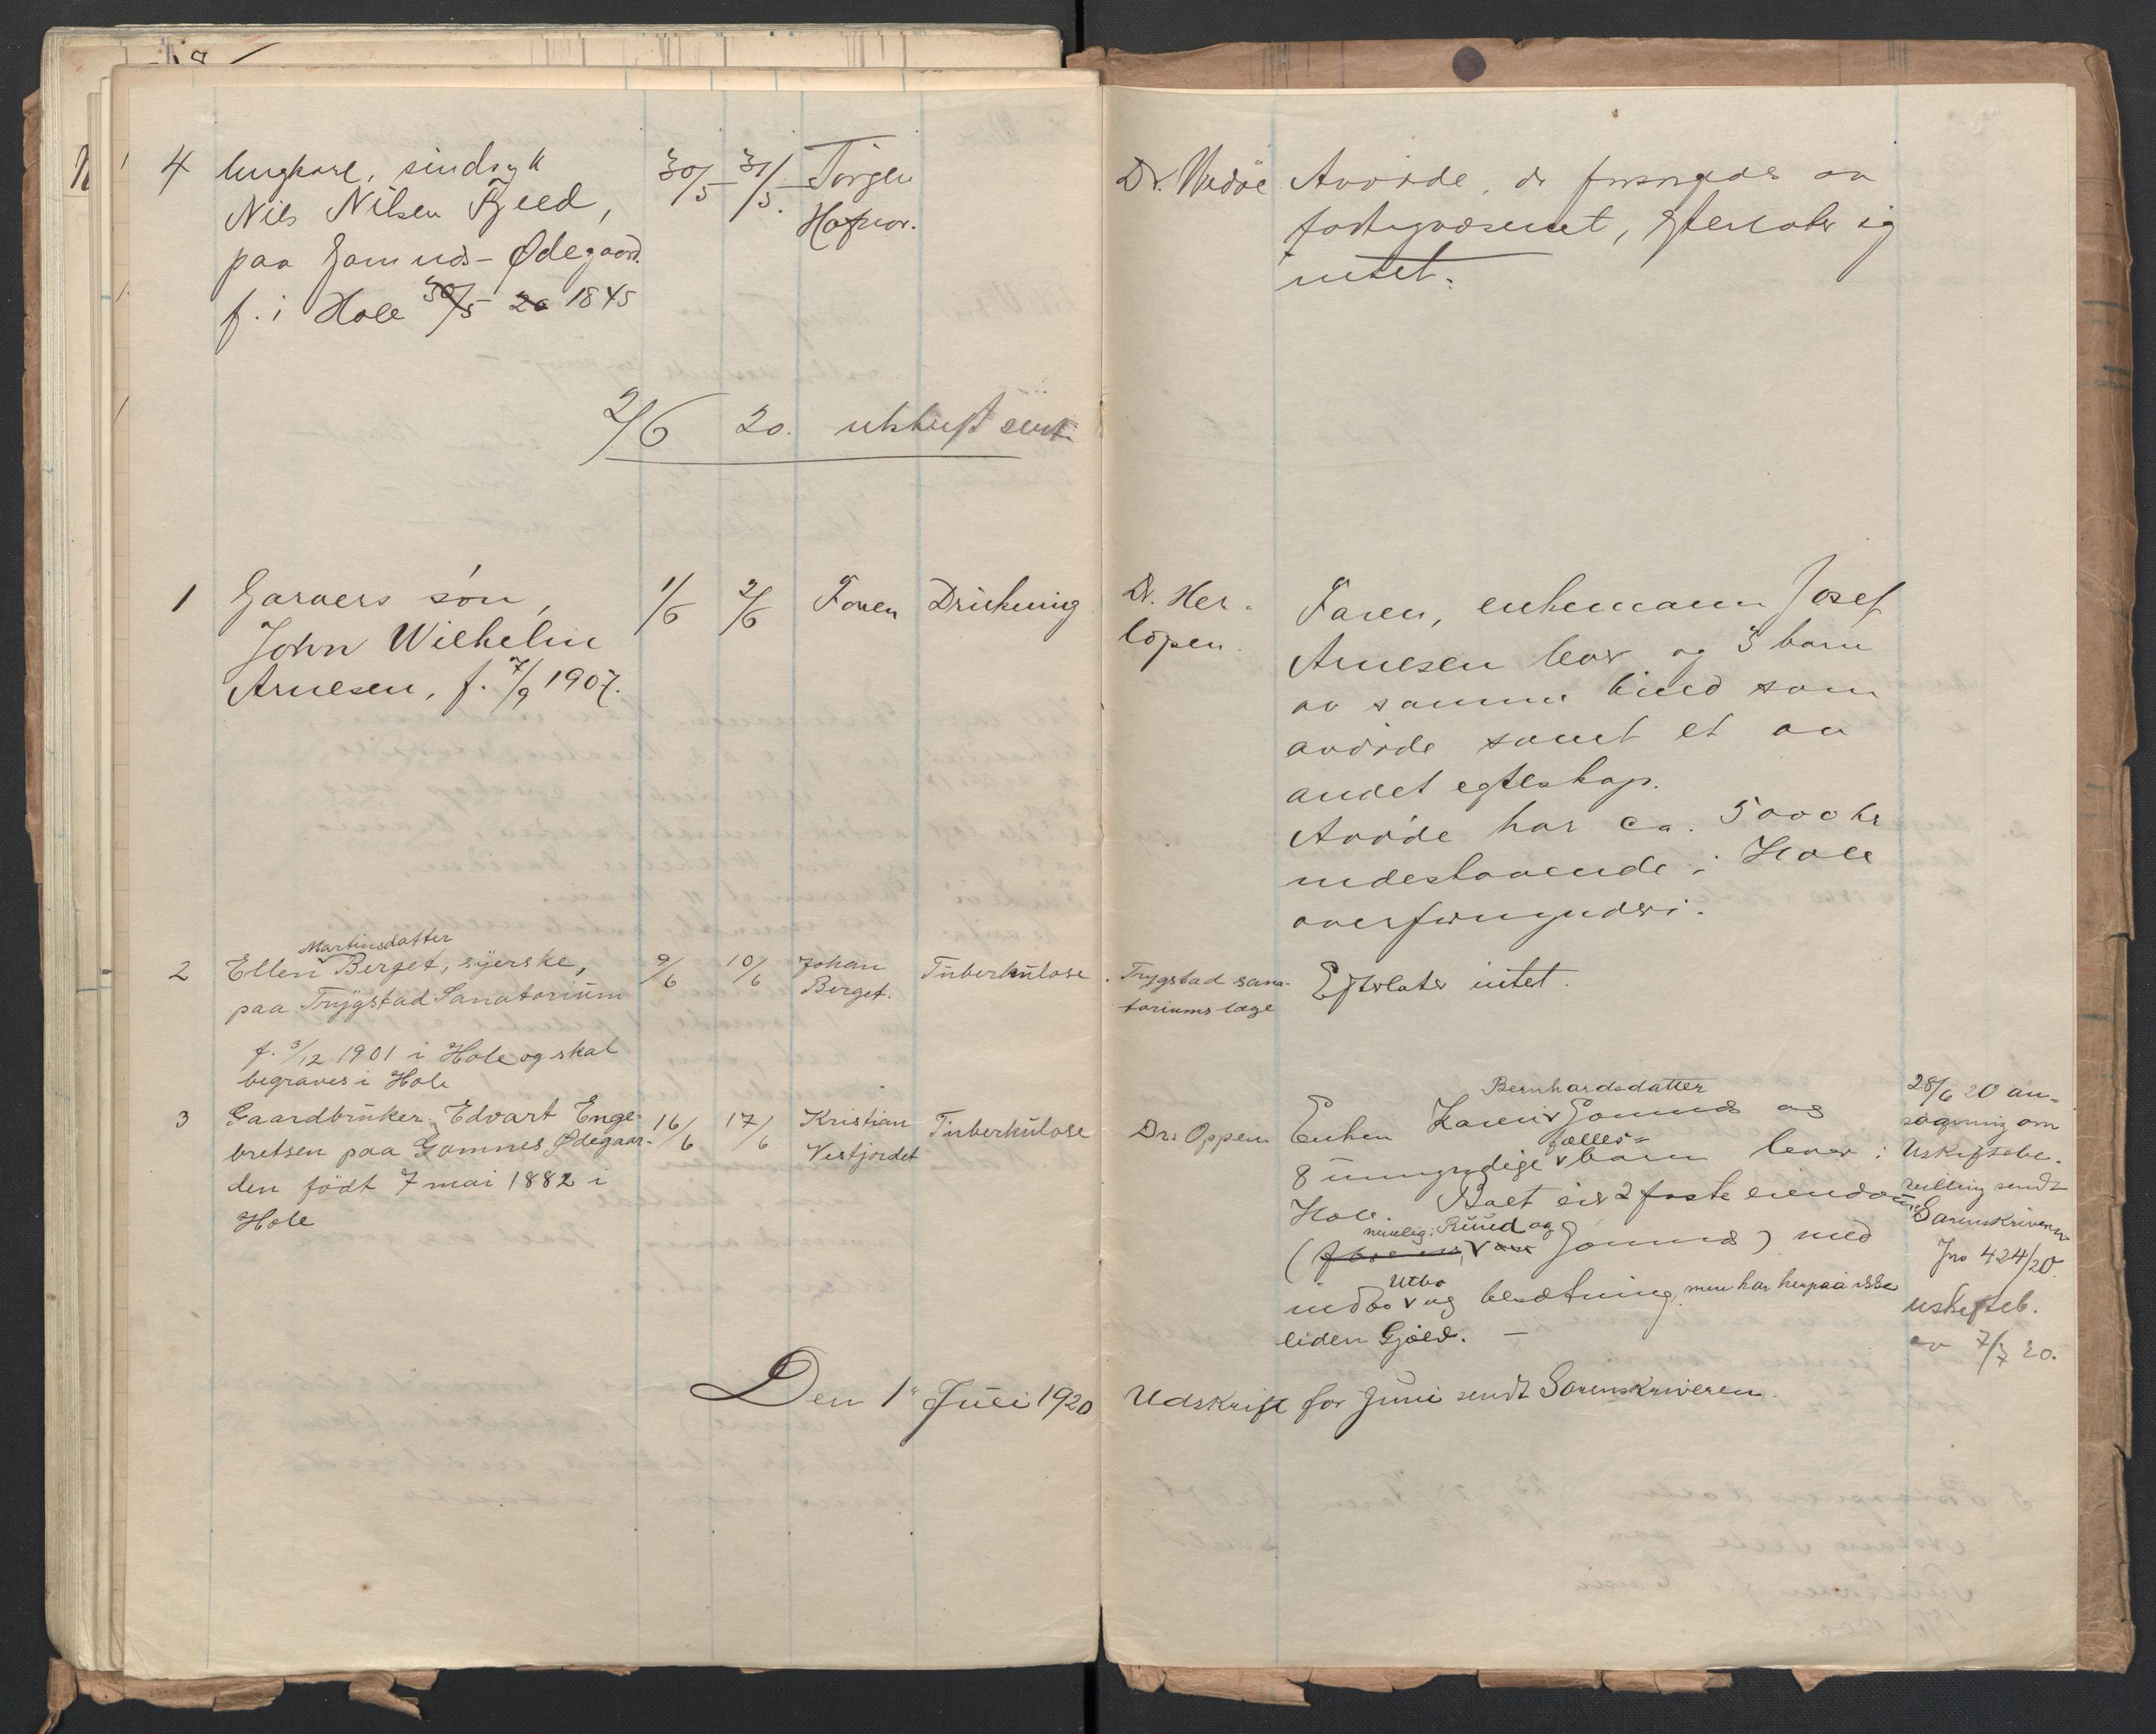 4 Ungkarl, sindsyk
Nils Nilsen Fjeld,
paa Gomnes-Ødegaard.
f. i Hole 30/5 20 1845
30/5 31/5.
Jørgen
Hafnor.
Dr. Wedøe
Avdøde, der forsørgedes av
fattigvæsenet, efterlater sig
intet.
2/6 20. utskrift sendt.
1 Garvers søn,
John Wilhelm
Arnesen, f. 7/9 1907.
1/6 2/6 Faren Drukning
Dr. Her-
lopen.
Faren, enkemann Josef
Arnesen lever og 3 barn
av samme kuld som
avdøde samt et av
andet egteskap.
Avdøde har ca. 5000 kr
indestaaende i Hole
overformynderi.
2 Ellen Martinsdatter Berget, syerske,
paa Trygstad Sanatorium
f. 3/12 1901 i Hole og skal
begraves i Hole
9/6 10/6
Johan
Berget.
Tuberkulose
Trygstad sana-
toriums læge
Efterlater intet.
3 Gaardbruker Edvart Enge-
bretsen paa Gomnes Ødegaar-
den født 7 mai 1882 i
Hole
16/6 17/6
Kristian
Vestjordet
Tuberkulose
Dr. Oppen
Enken Karen Bernhardsdatter Gomnes og
8 umyndige fælles- barn lever i
Hole. Boet eier 2 faste eiendomme
(nemlig: Ruud og Gomnes) med
indbo Utbo og besætning, men har herpaa ikke
liden Gjæld. —
28/6 20 an-
søgning om
Uskiftebe-
villing sendt
Sorenskriveren
Jno 424/20.
uskifteb.
av 7/7 20.
Den 1 Juli 1920 Udskrift for Juni sendt Sorenskriveren.